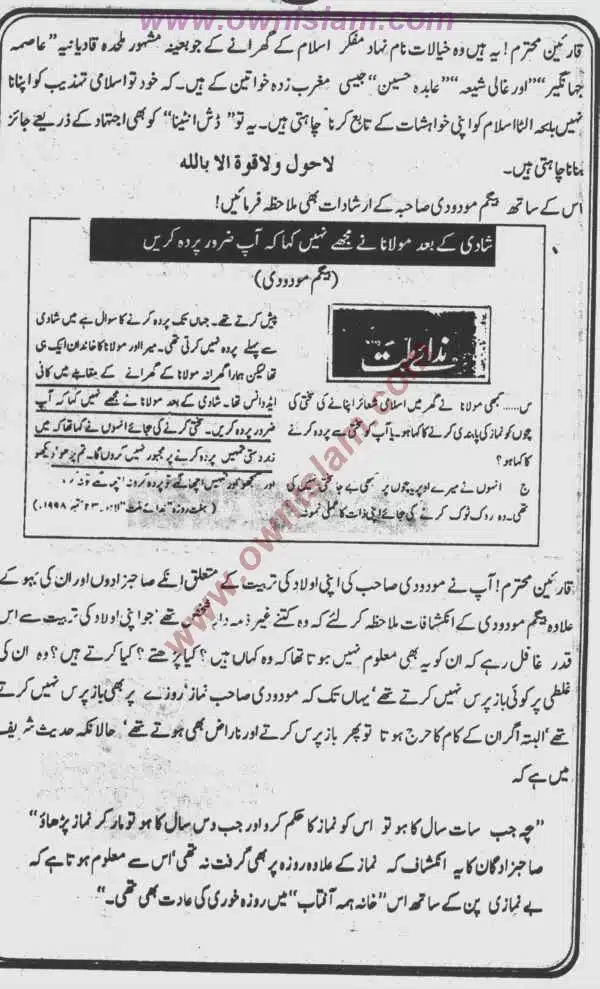 www.ownislam.com
قارئین محترم! یہ ہیں وہ خیالات نام نہاد مفکر اسلام کے گھرانے کے جو بعینہ مشہور ملحدہ قادیانیہ ”عاصمہ
جہانگیر“ ”اور غالی شیعہ“ ”عابدہ حسین“ جیسی مغرب زدہ خواتین کے ہیں۔ کہ خود تو اسلامی تہذیب کو اپنانا
نہیں بلکہ الٹا اسلام کو اپنی خواہشات کے تابع کرنا چاہتی ہیں۔ یہ تو ”ڈش انٹینا“ کو بھی اجتہاد کے ذریعے جائز
بنانا چاہتی ہیں۔ لاحول ولاقوة الا بالله
اس کے ساتھ بیگم مودودی صاحبہ کے ارشادات بھی ملاحظہ فرمائیں!
شادی کے بعد مولانا نے مجھے نہیں کہا کہ آپ ضرور پردہ کریں
(بیگم مودودی)
ندائے ملت
س..... کبھی مولانا نے گھر میں اسلامی شعائر اپنانے کی سختی کی
چوں کو نماز کی پابندی کرنے کا کہا ہو۔ یا آپ کو سختی سے پردہ کرنے
کا کہا ہو؟
ج انہوں نے میرے اوپر یا چوں پر کبھی بے جا سختی نہیں کی
تھی۔ وہ روک ٹوک کرنے کی جائے اپنی ذات کا عملی نمونہ
پیش کرتے تھے۔ جہاں تک پردہ کرنے کا سوال ہے میں شادی
سے پہلے پردہ نہیں کرتی تھی۔ میرا اور مولانا کا خاندان ایک ہی
تھا لیکن ہمارا گھرانہ مولانا کے گھرانے کے مقابلے میں کافی
ایڈوانس تھا۔ شادی کے بعد مولانا نے مجھے نہیں کہا کہ آپ
ضرور پردہ کریں۔ سختی کرنے کی جائے انہوں نے کہا تھا کہ میں
زبردستی تمہیں پردہ کرنے پر مجبور نہیں کروں گا۔ تم پڑھو، دیکھو
اور سمجھو اور تمہیں اچھا لگے تو پردہ کرو نہ اچھا لگے تو نہ کرو
(ہفت روزہ ”ندائے ملت“ لاہور ۲۳ ستمبر ۱۹۹۸ء)
قارئین محترم! آپ نے مودودی صاحب کی اپنی اولاد کی تربیت کے متعلق انکے صاحبزادوں اور ان کی بہو کے
علاوہ بیگم مودودی کے انکشافات ملاحظہ کر لئے کہ وہ کتنے غیر ذمہ دار شخص تھے ’جو اپنی اولاد کی تربیت سے اس
قدر غافل رہے کہ ان کو یہ بھی معلوم نہیں ہوتا تھا کہ وہ کہاں ہیں؟ کیا پڑھتے؟ کیا کرتے ہیں؟ وہ ان کی
غلطی پر کوئی باز پرس نہیں کرتے تھے‘ یہاں تک کہ مودودی صاحب نماز‘ روزے پر بھی باز پرس نہیں کرتے
تھے‘ البتہ اگر ان کے کام کا حرج ہوتا تو پھر باز پرس کرتے اور ناراض بھی ہوتے تھے‘ حالانکہ حدیث شریف
میں ہے کہ
”چہ جب سات سال کا ہو تو اس کو نماز کا حکم کرو اور جب دس سال کا ہو تو مار کر نماز پڑھاؤ“
صاحبزادگان کا یہ انکشاف کہ نماز کے علاوہ روزہ پر بھی گرفت نہ تھی‘ اس سے معلوم ہوتا ہے کہ
بے نمازی پن کے ساتھ اس ”خانہ ہمہ آفتاب“ میں روزہ خوری کی عادت بھی تھی۔“
www.ownislam.com